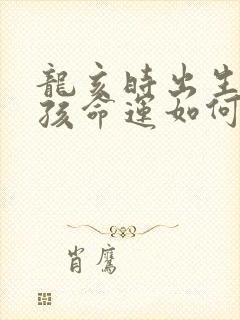 龍亥時出生
孩命運如何
肖鷹